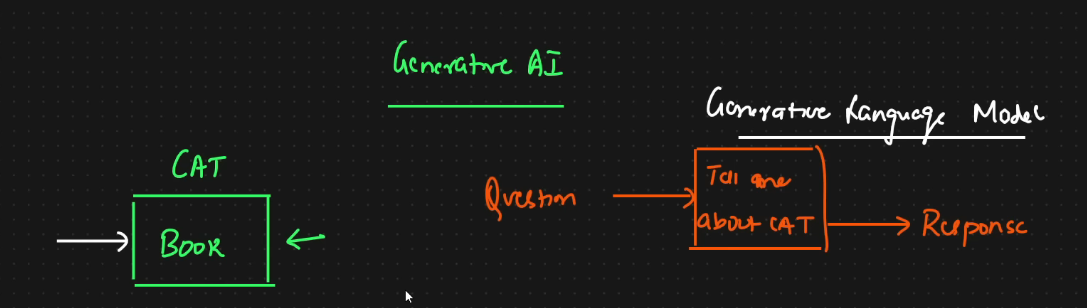 Generative AI
Generative Language Model
CAT
BOOK
Question
Tell me
about CAT
Response